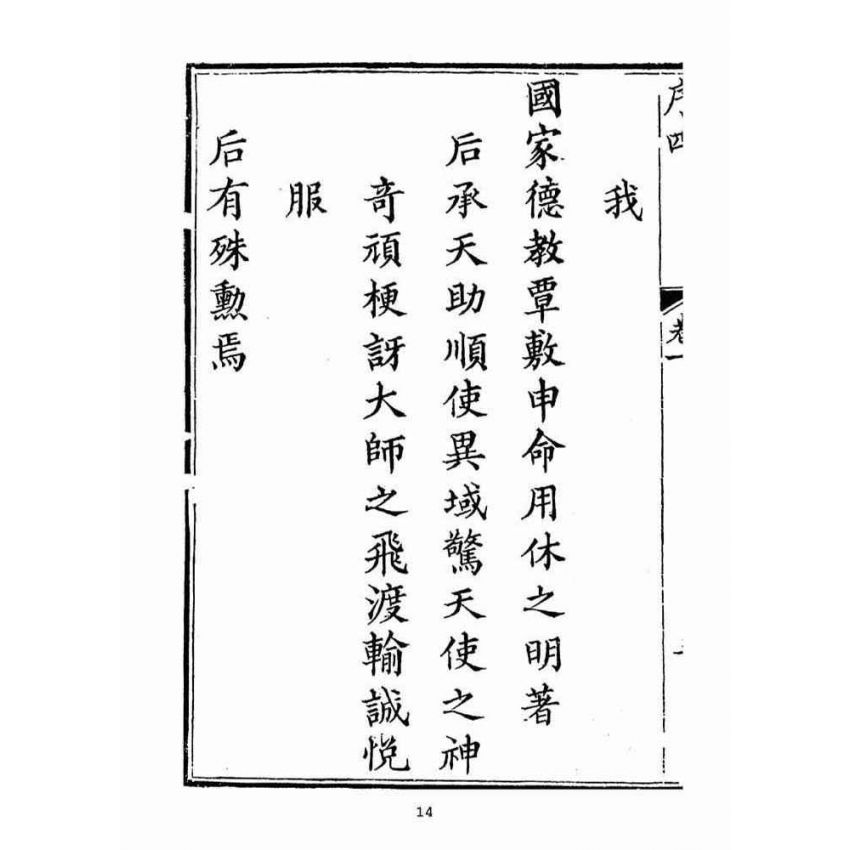 序四
卷一
我
國家德教覃敷申命用休之明著
后承天助順使異域驚天使之神
奇頑梗訝大師之飛渡輸誠悅
服
后有殊勳焉
14